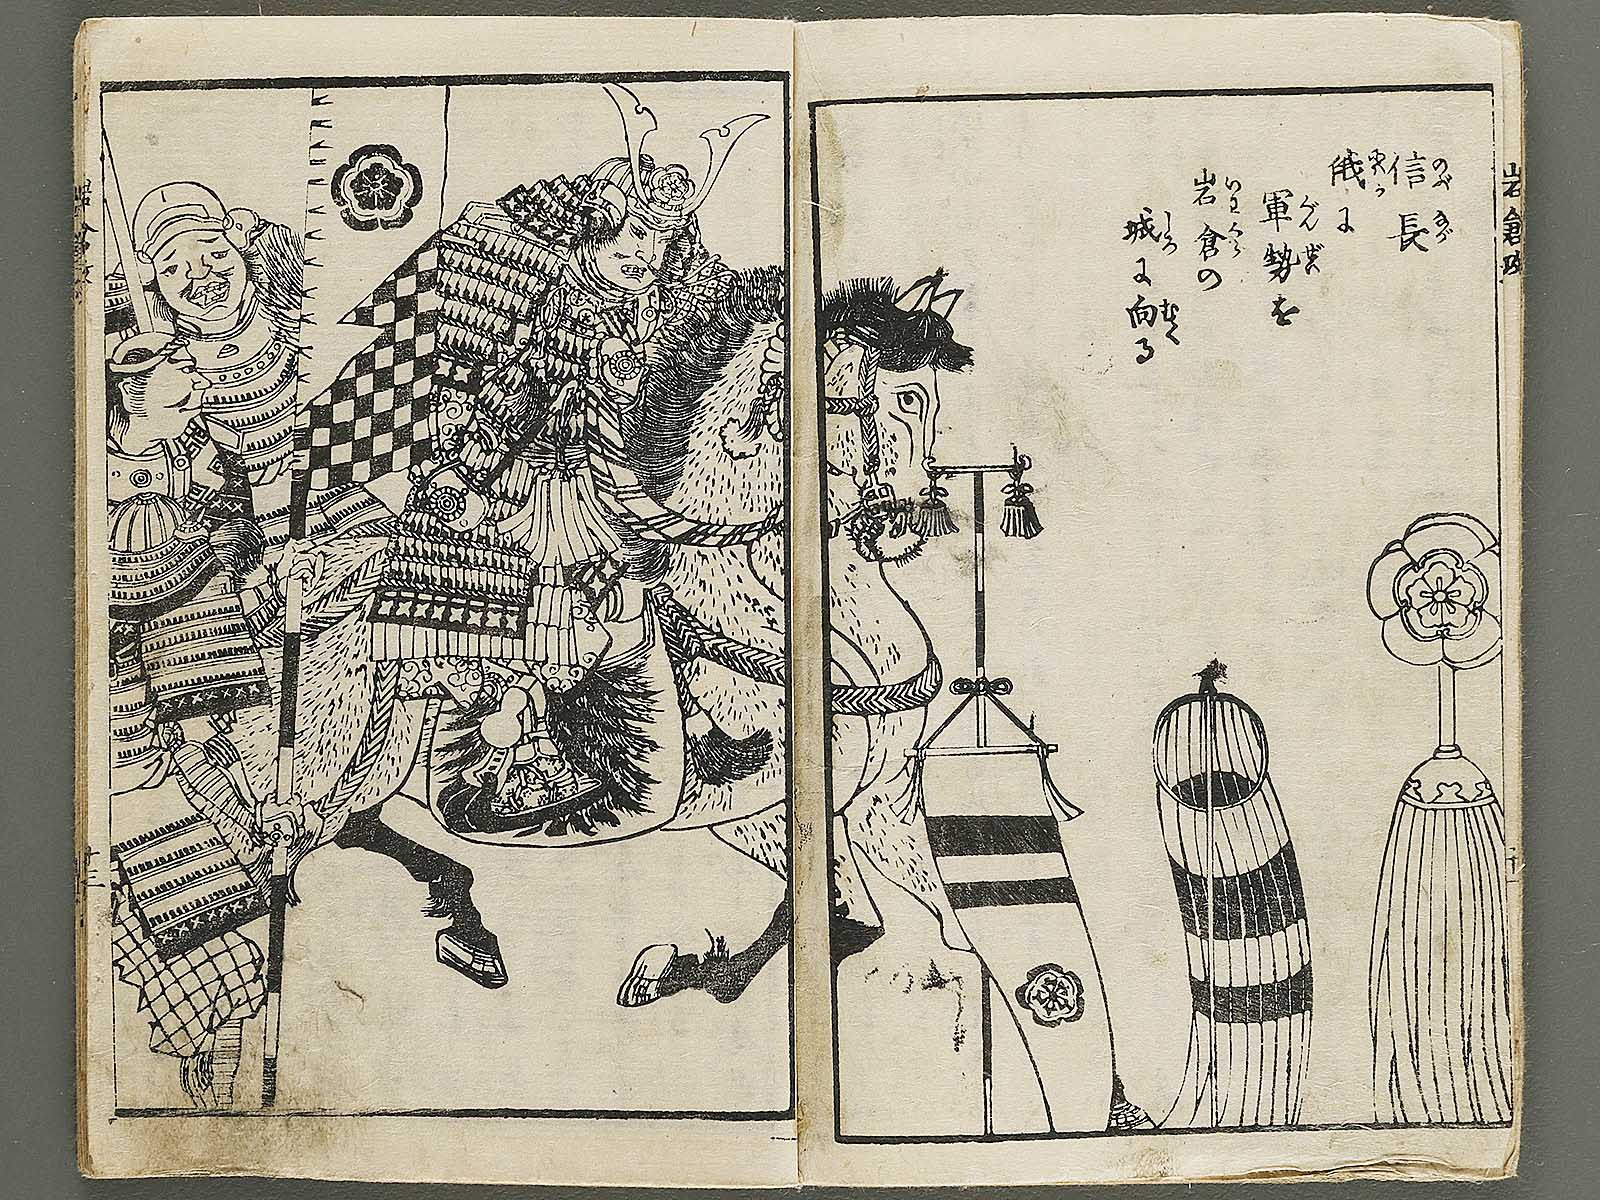 信長
俄に
軍勢を
岩倉の
城に向る
のぶ なが
にハか
ぐんぜい
いわくら
しろ
むく
岩倉攻
十三